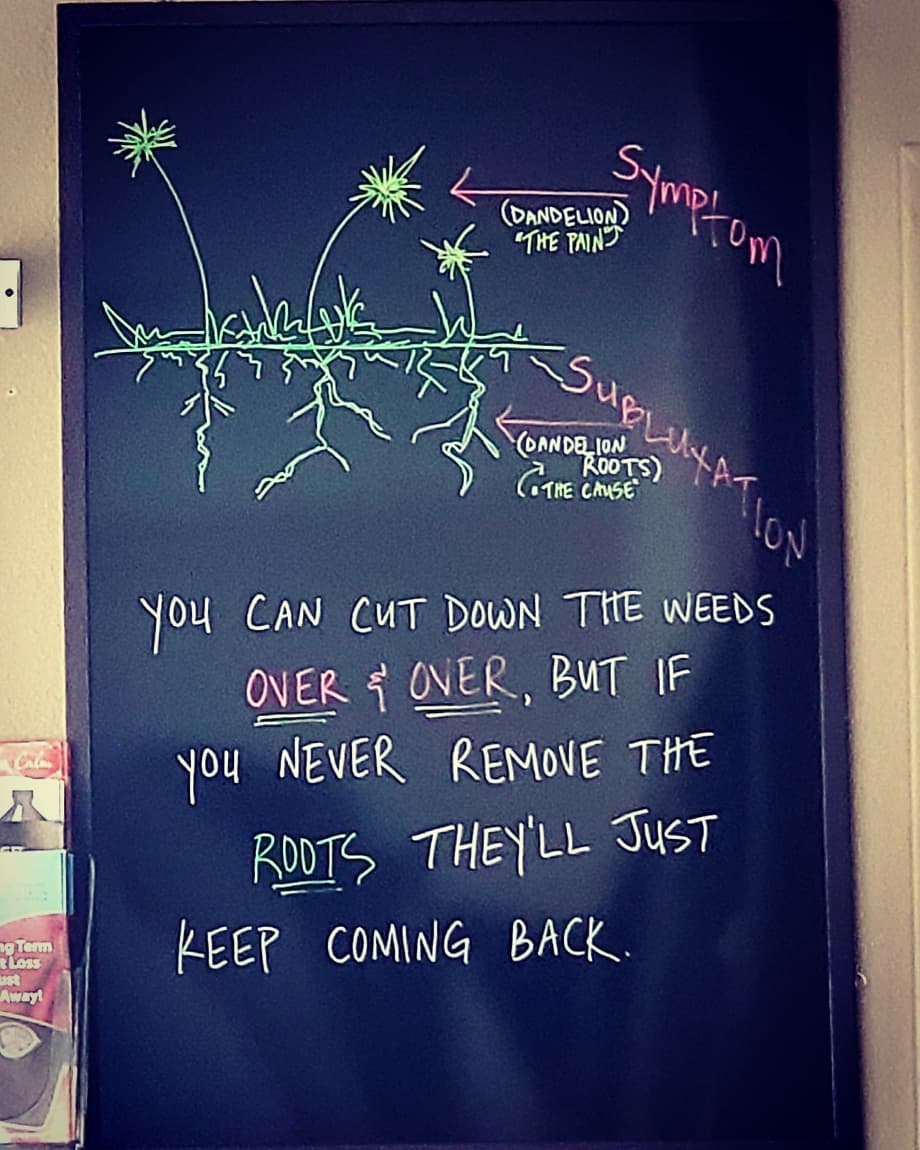 Symptom
(DANDELION)
"THE PAIN"
SUBLUXATION
(DANDELION
ROOTS)
"THE CAUSE"
YOU CAN CUT DOWN THE WEEDS
OVER & OVER, BUT IF
YOU NEVER REMOVE THE
ROOTS THEY'LL JUST
KEEP COMING BACK.
Calm
ng Term
t Loss
ust
Away!